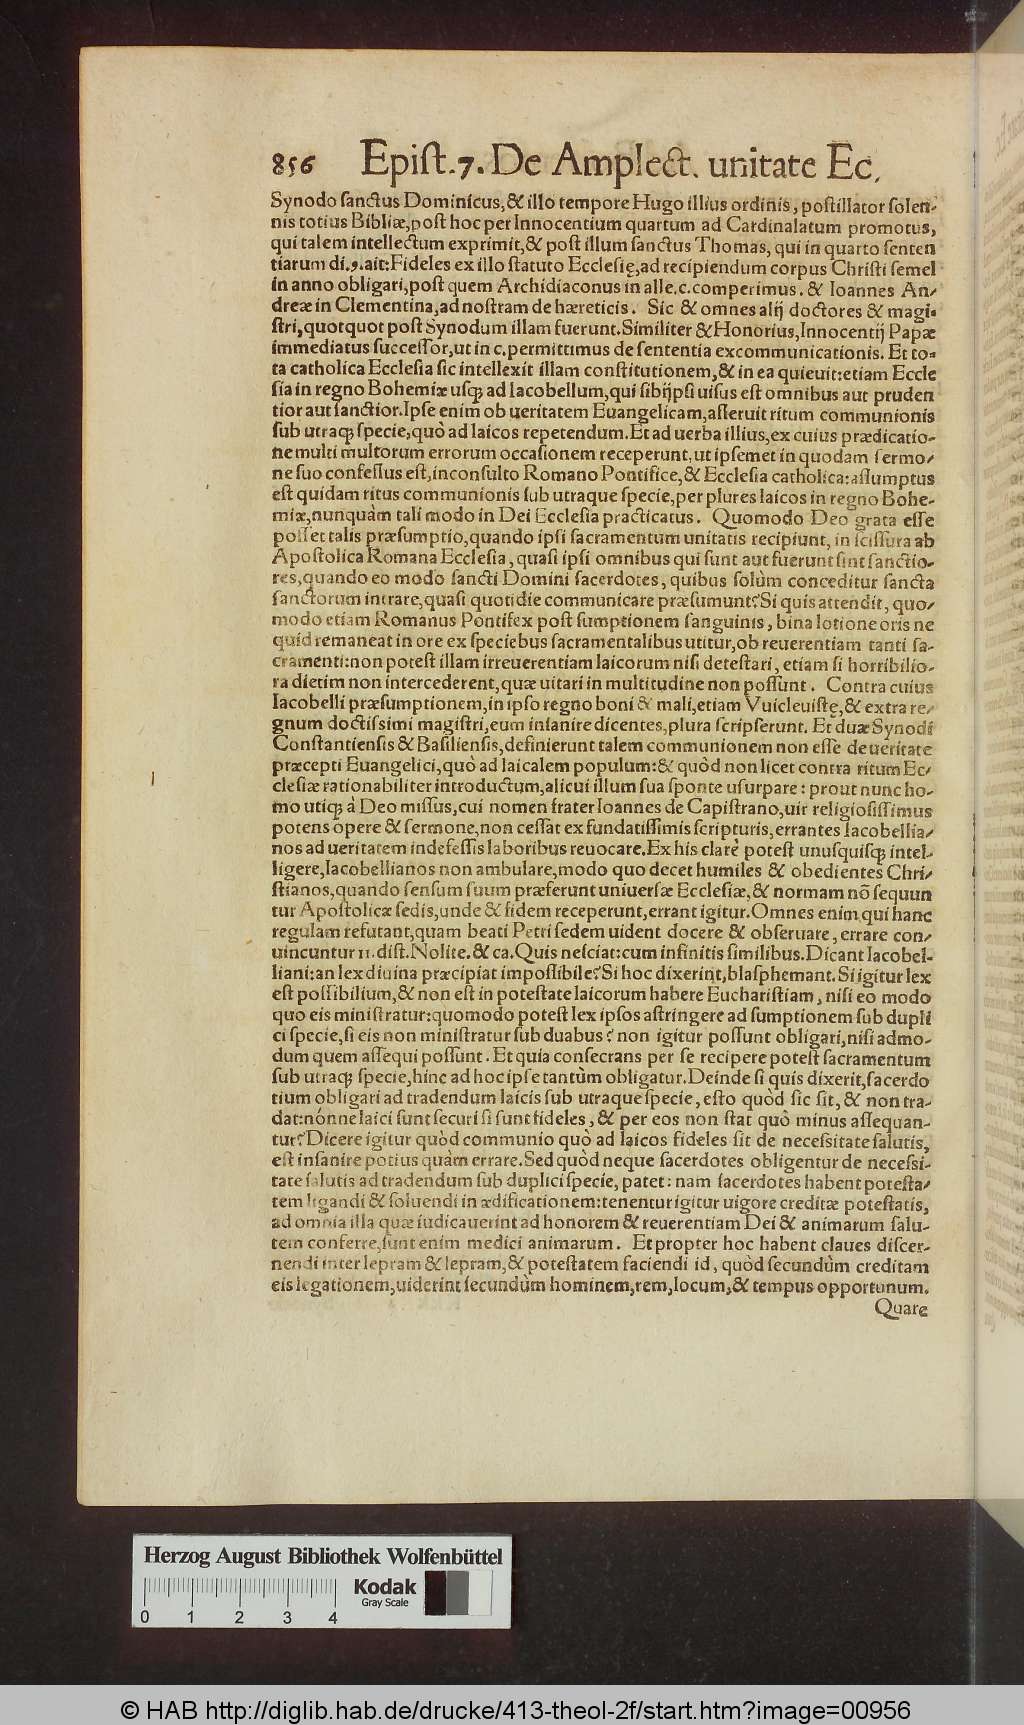 856 Epist.7.De Amplect. unitate Ec.
Synodo sanctus Dominicus,& illo tempore Hugo illius ordinis, postillator solen-
nis totius Bibliæ,post hoc per Innocentium quartum ad Cardinalatum promotus,
qui talem intellectum exprimit,& post illum sanctus Thomas, qui in quarto senten
tiarum di.9.ait:Fideles ex illo statuto Ecclesię,ad recipiendum corpus Christi semel
in anno obligari,post quem Archidiaconus in alle.c.comperimus. & Ioannes An-
dreæ in Clementina,ad nostram de hæreticis. Sic & omnes alij doctores & magi-
stri,quotquot post Synodum illam fuerunt.Similiter & Honorius,Innocentij Papæ
immediatus successor,ut in c.permittimus de sententia excommunicationis. Et to-
ta catholica Ecclesia sic intellexit illam constitutionem,& in ea quieuit:etiam Eccle
sia in regno Bohemiæ usq; ad Iacobellum,qui sibijpsi uisus est omnibus aut pruden
tior aut sanctior.Ipse enim ob ueritatem Euangelicam,asseruit ritum communionis
sub utraq; specie,quò ad laicos repetendum.Et ad uerba illius,ex cuius prædicatio-
ne multi multorum errorum occasionem receperunt,ut ipsemet in quodam sermo-
ne suo confessus est,inconsulto Romano Pontifice,& Ecclesia catholica:assumptus
est quidam ritus communionis sub utraque specie,per plures laicos in regno Bohe-
miæ,nunquàm tali modo in Dei Ecclesia practicatus. Quomodo Deo grata esse
posset talis præsumptio,quando ipsi sacramentum unitatis recipiunt, in scissura ab
Apostolica Romana Ecclesia, quasi ipsi omnibus qui sunt aut fuerunt sint sanctio-
res,quando eo modo sancti Domini sacerdotes, quibus solùm conceditur sancta
sanctorum intrare,quasi quotidie communicare præsumunt?Si quis attendit, quo-
modo etiam Romanus Pontifex post sumptionem sanguinis, bina lotione oris ne
quid remaneat in ore ex speciebus sacramentalibus utitur,ob reuerentiam tanti sa-
cramenti:non potest illam irreuerentiam laicorum nisi detestari, etiam si horribilio-
ra dietim non intercederent,quæ uitari in multitudine non possunt. Contra cuius
Iacobelli præsumptionem,in ipso regno boni & mali,etiam Vuicleuistę,& extra re-
gnum doctissimi magistri,eum insanire dicentes,plura scripserunt. Et duæ Synodi
Constantiensis & Basiliensis,definierunt talem communionem non esse de ueritate
præcepti Euangelici,quò ad laicalem populum:& quòd non licet contra ritum Ec-
clesiæ rationabiliter introductum,alicui illum sua sponte usurpare: prout nunc ho-
mo utiq; à Deo missus,cui nomen frater Ioannes de Capistrano,uir religiosissimus
potens opere & sermone,non cessat ex fundatissimis scripturis,errantes Iacobellia-
nos ad ueritatem indefessis laboribus reuocare.Ex his clarè potest unusquisq; intel-
ligere,Iacobellianos non ambulare,modo quo decet humiles & obedientes Chri-
stianos,quando sensum suum præferunt uniuersæ Ecclesiæ,& normam nõ sequun
tur Apostolicæ sedis,unde & fidem receperunt,errant igitur.Omnes enim qui hanc
regulam refutant,quam beati Petri sedem uident docere & obseruare, errare con-
uincuntur 11.dist.Nolite.& ca.Quis nesciat:cum infinitis similibus.Dicant Iacobel-
liani:an lex diuina præcipiat impossibile?Si hoc dixerint,blasphemant.Si igitur lex
est possibilium,& non est in potestate laicorum habere Eucharistiam, nisi eo modo
quo eis ministratur:quomodo potest lex ipsos astringere ad sumptionem sub dupli
ci specie,si eis non ministratur sub duabus? non igitur possunt obligari,nisi ad mo-
dum quem assequi possunt. Et quia consecrans per se recipere potest sacramentum
sub utraq; specie,hinc ad hoc ipse tantùm obligatur.Deinde si quis dixerit,sacerdo
tium obligari ad tradendum laicis sub utraque specie, esto quòd sic sit, & non tra-
dat:nónne laici sunt securi si sunt fideles, & per eos non stat quò minus assequan-
tur?Dicere igitur quòd communio quò ad laicos fideles sit de necessitate salutis,
est insanire potius quàm errare.Sed quòd neque sacerdotes obligentur de necessi-
tate salutis ad tradendum sub duplici specie, patet: nam sacerdotes habent potesta-
tem ligandi & soluendi in ædificationem:tenentur igitur uigore creditæ potestatis,
ad omnia illa quæ iudicauerint ad honorem & reuerentiam Dei & animarum salu-
tem conferre,sunt enim medici animarum. Et propter hoc habent claues discer-
nendi inter lepram & lepram,& potestatem faciendi id, quòd secundùm creditam
eis legationem,uiderint secundùm hominem,rem,locum,& tempus opportunum.
Quare
Herzog August Bibliothek Wolfenbüttel
Kodak
Gray Scale
0 1 2 3 4
© HAB http://diglib.hab.de/drucke/413-theol-2f/start.htm?image=00956